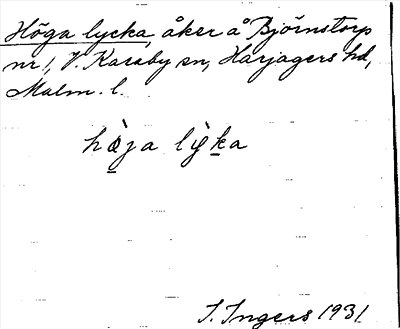 Höga lycka, åker å Björnstorp
nr 1, V. Karaby sn, Harjagers hd,
Malm. l.
hø̀ja lỳka
I. Ingers 1931